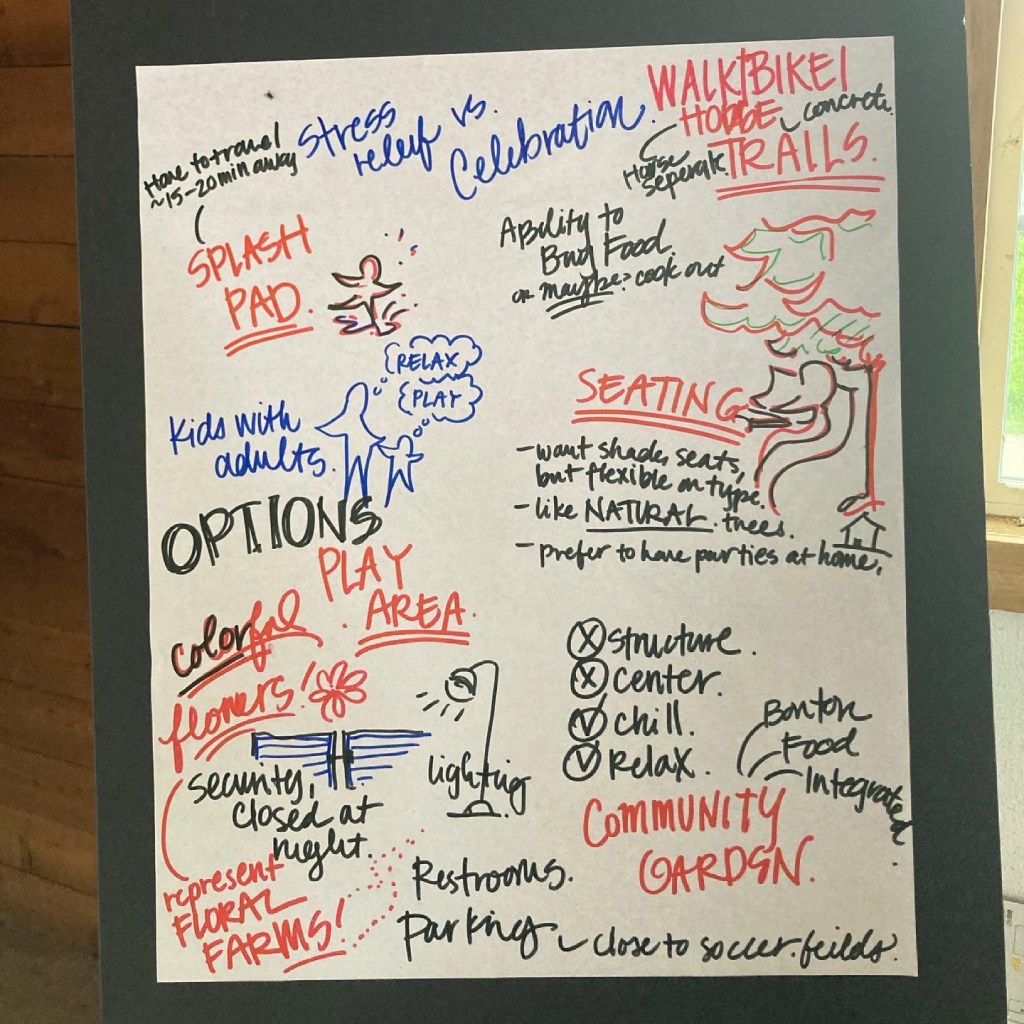 stress
relief vs.
Celebration.
WALK/BIKE/
HORSE
concrete.
TRAILS.
Horse
seperate
Have to travel
~15-20 min away
SPLASH
PAD.
Ability to
Buy Food
or maybe? cook out
RELAX
PLAY
Kids with
adults.
SEATING
- want shade, seats,
but flexible on type.
- like NATURAL trees.
- prefer to have parties at home.
OPTIONS
PLAY
AREA.
colorful
flowers!
security,
closed at
night.
lighting
represent
FLORAL
FARMS!
X structure.
X center.
V chill.
V Relax.
Bonton
Food
Integrated.
COMMUNITY
GARDEN.
Restrooms.
Parking
close to soccer feilds.